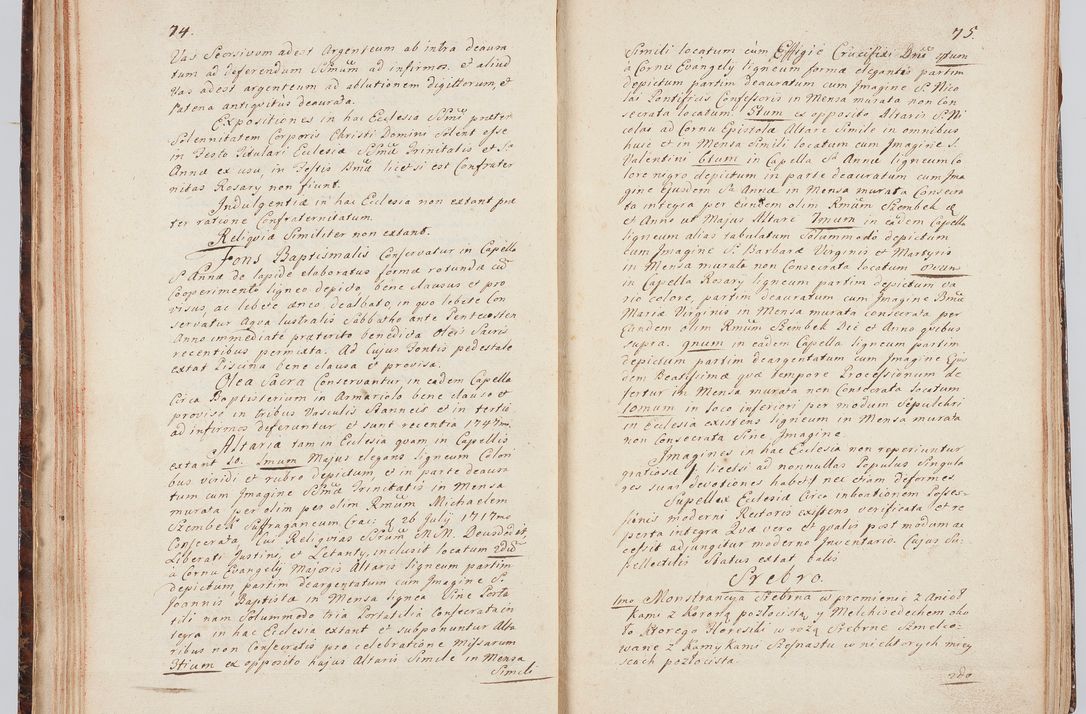 74.
Vas Seorsivum adest Argenteum ab intra deaura
tum ad deferendum Ssmum ad infirmos. et aliud
Vas adest argenteum ad ablutionem digittorum et
Patena antiquitus deaurata.
Expositiones in hac Ecclesia Ssmi præter
Solennitatem Corporis Christi Domini solent esse
in Festo Titulari Ecclesiæ Ssmæ Trinitatis et S.
Annæ ex usu, in Festis Bmæ licet si est Confrater
nitas Rosary non fiunt.
Indulgentiæ in hac Ecclesia non extant præ
ter ratione Confraternitatum.
Religviæ Similiter non extant.
Fons Baptismalis Conservatur in Capella
S. Annæ de lapide elaboratus forma rotunda cū
Cooperimento ligneo depicto bene clausus et pro
visus, ac lebete æneo dealbato, in quo lebete Con
servatur Aqva lustralis Sabbatho ante Pentecosten
Anno immediate præterito benedicta Oleis Sacris
recentibus permixta. Ad Cujus Fontis pedestale
extat Piscina bene clausa et provisa.
Olea Sacra Conservantur in eadem Capella
Circa Baptisterium in Armariolo bene clauso et
proviso in tribus Vasculis Stanneis et in tertio
ad infirmos deferuntur et sunt recentia 1747mi.
Altaria tam in Ecclesia quam in Capellis
extant 10. 1mum Majus elegans ligneum Colori
bus viridi et rubro depictum, et in parte deaura
tum cum Imagine Ssmæ Trinitatis in Mensa
murata per olim per olim Rmum Michaelem
Szembek Suffraganeum Crac: d 26 July 1717mo
Consecrata, Cui Religvias Ssrum M.M. Deusdedit,
Liberati Justini, et Letanty, inclusit locatum 2dū
à Cornu Evangely Majoris Altaris ligneum partim
depictum partim deargentatum cum Imagine S.
Joannis Baptistæ in Mensa lignea Sine Porta
tili nam Solummodo tria Portatilia Consecrata in
tegra in hac Ecclesia extant et subponuntur Alta
ribus non Consecratis pro celebratione Missarum
3tium ex opposito hujus Altaris Simile in Mensa
Simili
75.
Simili locatum cum Effigie Crucifixi Dni 4tum
à Cornu Evangely ligneum formæ elegantis partim
depictum partim deauratum cum Imagine S. Nico
lai Pontificis Confessoris in Mensa murata non Con
secrata locatum. 5tum ex opposito Altaris S. Ni
colai ad Cornu Epistolæ Altare Simile in omnibus
huic et in Mensa Simili locatum cum Imagine S.
Valentini 6tum in Capella S. Annæ ligneum Co
lore nigro depictum in parte deauratum cum Ima
gine Ejusdem S. Annæ in Mensa murata Consecra
ta integra per eundem olim Rmum Szembek die
et Anno ut Majus Altare 7mum in eadem Capella
ligneum alias tabulatum Solummodo depictum
cum Imagine S. Barbaræ Virginis et Martyris
in Mensa murata non Consecrata locatum 8vum
in Capella Rosary ligneum partim depictum va
rio colore, partim deauratum cum Imagine Bmæ
Mariæ Virginis in Mensa murata consecrata per
Eundem olim Rmum Szembek Die et Anno quibus
supra. 9num in eadem Capella ligneum partim
depictum partim deargentatum cum Imagine Ejus
dem Beatissimæ quæ tempore Processionum de
fertur in Mensa murata non Consecrata locatum
10mum in loco inferiori per modum Sepulchri
in Ecclesia existens ligneum in Mensa murata
non Consecrata Sine Imagine.
Imagines in hac Ecclesia non reperiuntur
gratiosæ licet si ad nonnullas Populus Singula
res suas devotiones habet nec etiam deformes
Supellex Ecclesiæ Circa inboationem Posses=
sionis moderni Rectoris existens verificata et re
perta integra Quæ vero et qvalis post modum ac
cessit adjungitur moderno Inventario. Cujus Su
pellectilis Status extat talis
Srebro.
1mo Monstrancya Srebrna w promienie z Anioł
kami z Koroną pozłocistą, y Melchisedechem oko
ło ktorego Floresiki w rożą Srebrne Szmelco=
wane z Kamykami Szesnastu w niektorych miey
scach pozłocista
2do